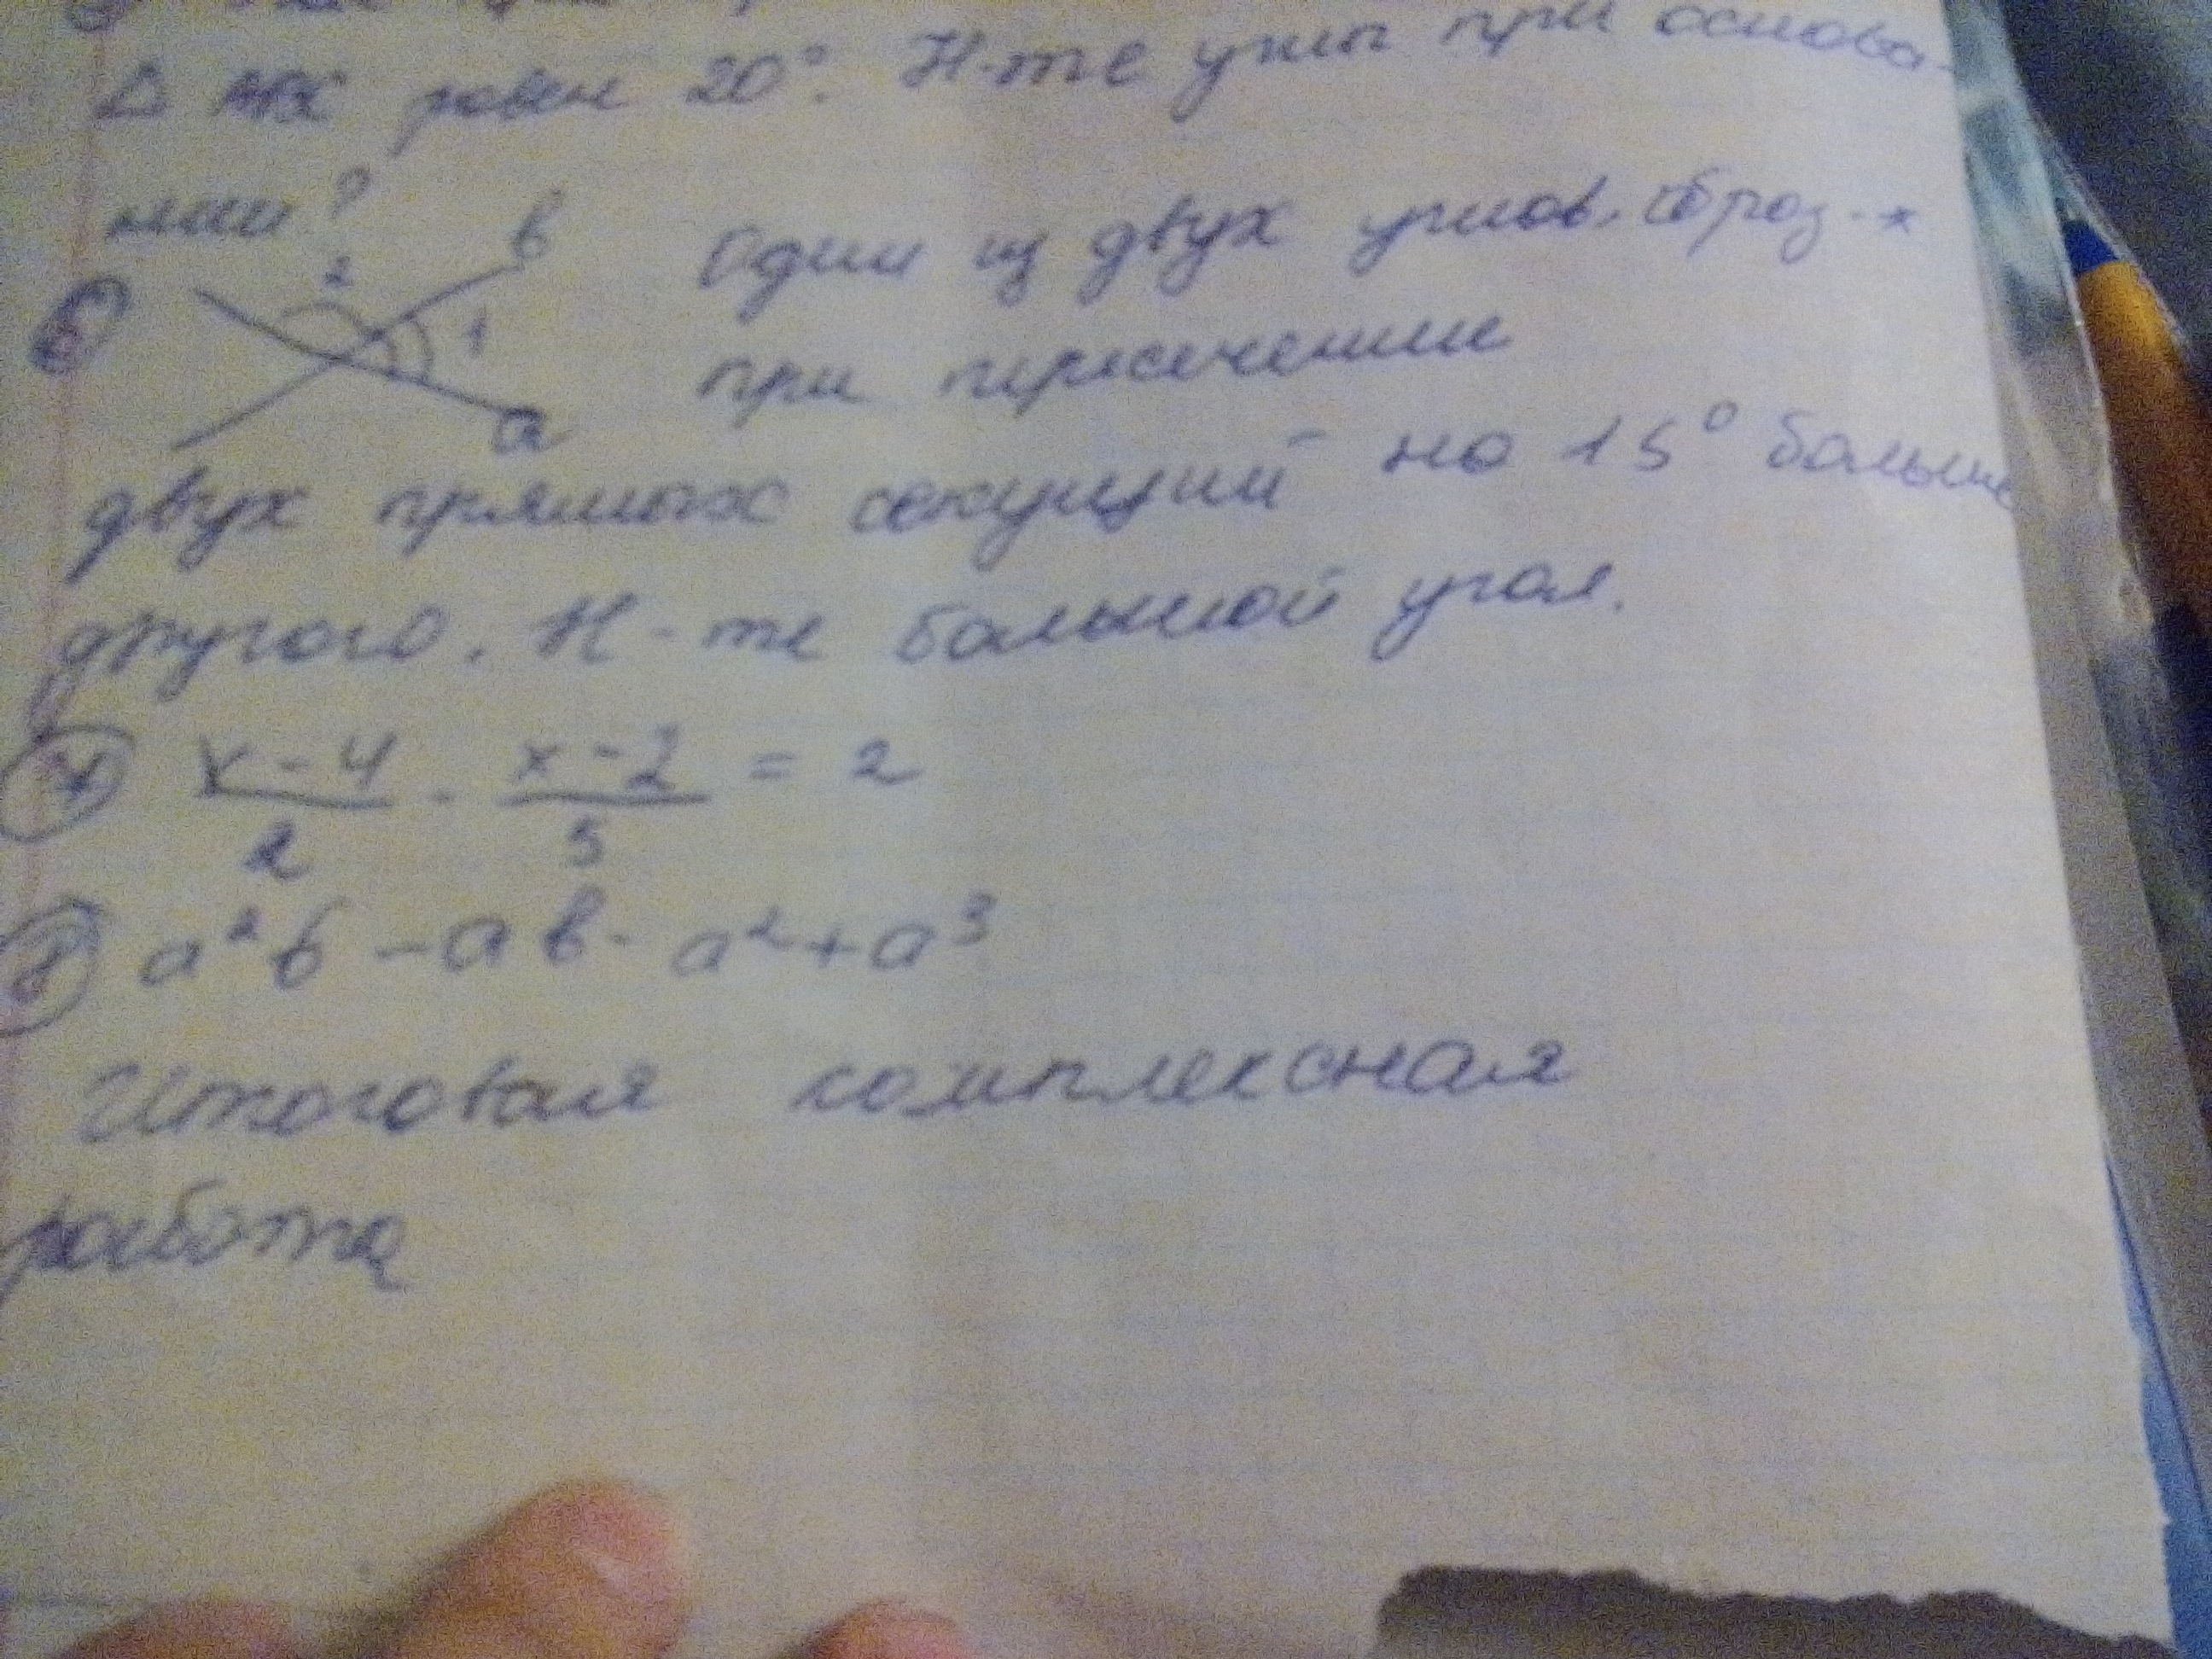 Δ АВС равен 20°. Н-те углы при основа-
нии?
2
в
6
1
а
Один из двух углов, образ-х
при пересечении
двух прямых секущий на 15° больше
другого. Н-те большой угол.
7 x-4/2 - x-2/3 = 2
8 a²b - ab - a² + a³
Итоговая комплексная
работа